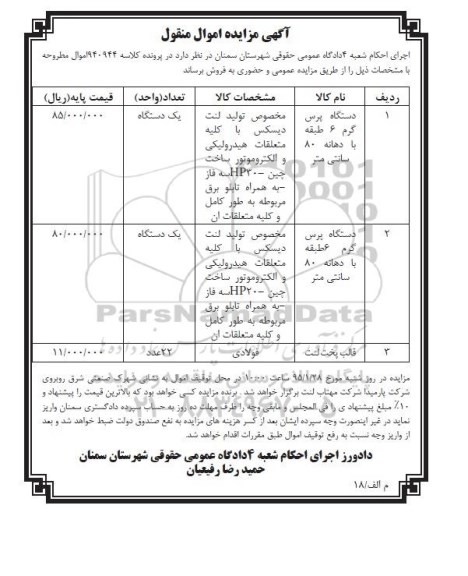 آگهی مزایده اموال منقول
اجرای احکام شعبه ۴دادگاه عمومی حقوقی شهرستان سمنان در نظر دارد در پرونده کلاسه ۹۴۰۹۴۴اموال مطروحه
با مشخصات ذیل را از طریق مزایده عمومی و حضوری به فروش برساند
ردیف نام کالا مشخصات کالا تعداد(واحد) قیمت پایه(ریال)
۱ دستگاه پرس مخصوص تولید لنت یک دستگاه ۸۵/۰۰۰/۰۰۰
گرم ۶ طبقه دیسکس با کلیه
با دهانه ۸۰ متعلقات هیدرولیکی
سانتی متر و الکتروموتور ساخت
چین –HP۲۰سه فاز
–به همراه تابلو برق
مربوطه به طور کامل
و کلیه متعلقات ان
۲ دستگاه پرس مخصوص تولید لنت یک دستگاه ۸۰/۰۰۰/۰۰۰
گرم ۶طبقه دیسکس با کلیه
با دهانه ۸۰ متعلقات هیدرولیکی
سانتی متر و الکتروموتور ساخت
چین –HP۲۰سه فاز
–به همراه تابلو برق
مربوطه به طور کامل
و کلیه متعلقات ان
۳ قالب پخت لنت فولادی ۲۲عدد ۱۱/۰۰۰/۰۰۰
مزایده در روز شنبه مورخ ۹۵/۱/۲۸ ساعت ۱۰:۰۰ در محل توقیف اموال به نشانی شهرک صنعتی شرق روبروی
شرکت پارمیدا شرکت مهتاب لنت برگزار خواهد شد . برنده مزایده کسی خواهد بود که بالاترین قیمت را پیشنهاد و
۱۰٪ مبلغ پیشنهاد ی را فی المجلس و مابقی وجه را ظرف مهلت ده روز به حساب سپرده دادگستری سمنان واریز
نماید در غیر اینصورت وجه سپرده ایشان بعد از کسر هزینه های مزایده به نفع صندوق دولت ضبط خواهد شد و بعد
از واریز وجه نسبت به رفع توقیف اموال طبق مقررات اقدام خواهد شد.
دادورز اجرای احکام شعبه ۴دادگاه عمومی حقوقی شهرستان سمنان
حمید رضا رفیعیان
م الف/۱۸
ParsNamadData